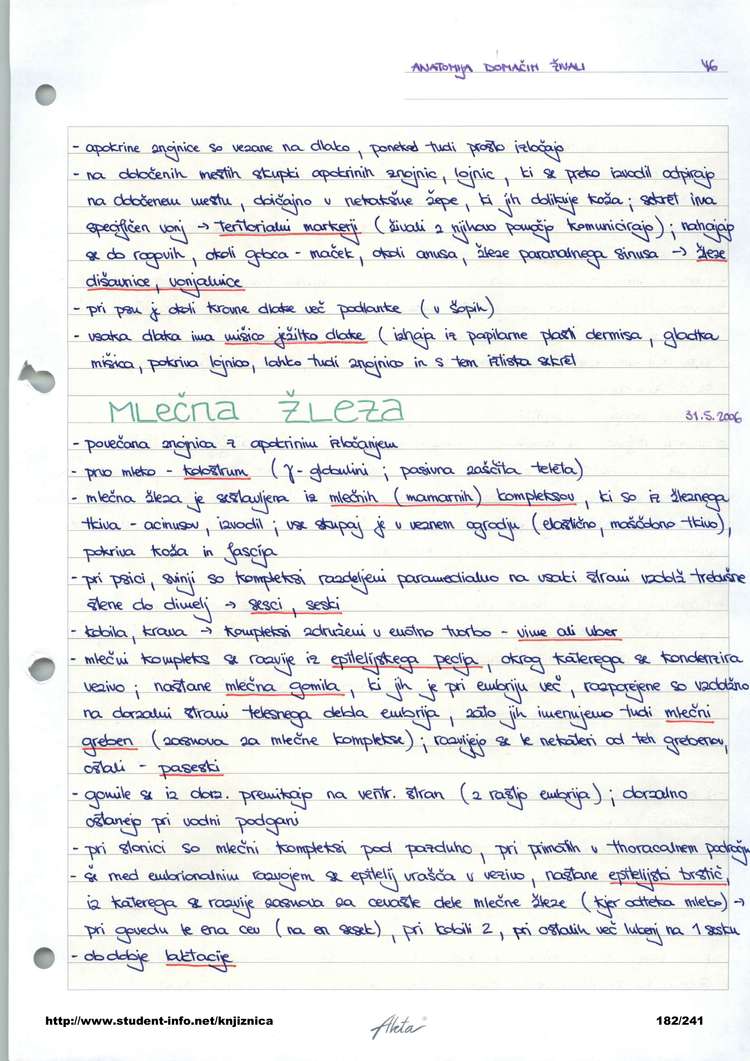 ANATOMIJA DOMAČIH ŽIVALI 46
- apokrine znojnice so vezane na dlako, ponekod tudi prosto izločajo
- na določenih mestih skupki apokrinih znojnic, lojnic, ki se preko izvodil odpirajo
na določenem mestu, običajno v nekakšne žepe, ki jih oblikuje koža; sekret ima
specifičen vonj → teritorialni markerji (živali z njihovo pomočjo komunicirajo); nahajajo
se do rogovih, okoli gobca - maček, okoli anusa, žleze paranalnega sinusa → žleze
dišavnice, vonjalnice
- pri psu je okoli krovne dlake več podlanke (v šopih)
- vsaka dlaka ima mišico ježilko dlake (izhaja iz papilarne plasti dermisa, gladka
mišica, pokriva lojnico, lahko tudi znojnico in s tem iztiska sekret
MLEČNA ŽLEZA 31.5.2006
- povečana znojnica z apokrinim izločanjem
- prvo mleko - kolostrum (γ-globulini; pasivna zaščita teleta)
- mlečna žleza je sestavljena iz mlečnih (mamarnih) kompleksov, ki so iz žleznega
tkiva - acinusov, izvodil; vse skupaj je v veznem ogrodju (elastično, maščobno tkivo),
pokriva koža in fascija
- pri psici, svinji so kompleksi razdeljeni paramedialno na vsaki strani vzdolž trebušne
stene do dimelj → sesci, seski
- kobila, krava → kompleksi združeni v enotno tvorbo - vime ali uber
- mlečni kompleks se razvije iz epitelijskega peclja, okrog katerega se kondenzira
vezivo; nastane mlečna gomila, ki jih je pri embriju več, razporejene so vzdolžno
na dorzalni strani telesnega debla embrija, zato jih imenujemo tudi mlečni
greben (zasnova za mlečne komplekse); razvijejo se le nekateri od teh grebenov,
ostali - paseski
- gomile se iz dorz. premikajo na ventr. stran (z rastjo embrija); dorzalno
ostanejo pri vodni podgani
- pri slonici so mlečni kompleksi pod pazduho, pri primatih v thoracalnem področju
- še med embrionalnim razvojem se epitelij vrašča v vezivo, nastane epitelijski brstič,
iz katerega se razvije zasnova za cevaste dele mlečne žleze (kjer odteka mleko) →
pri govedu le ena cev (na en sesek), pri kobili 2, pri ostalih več lukenj na 1 sesku
- obdobje laktacije
http://www.student-info.net/knjiznica Akta 182/241